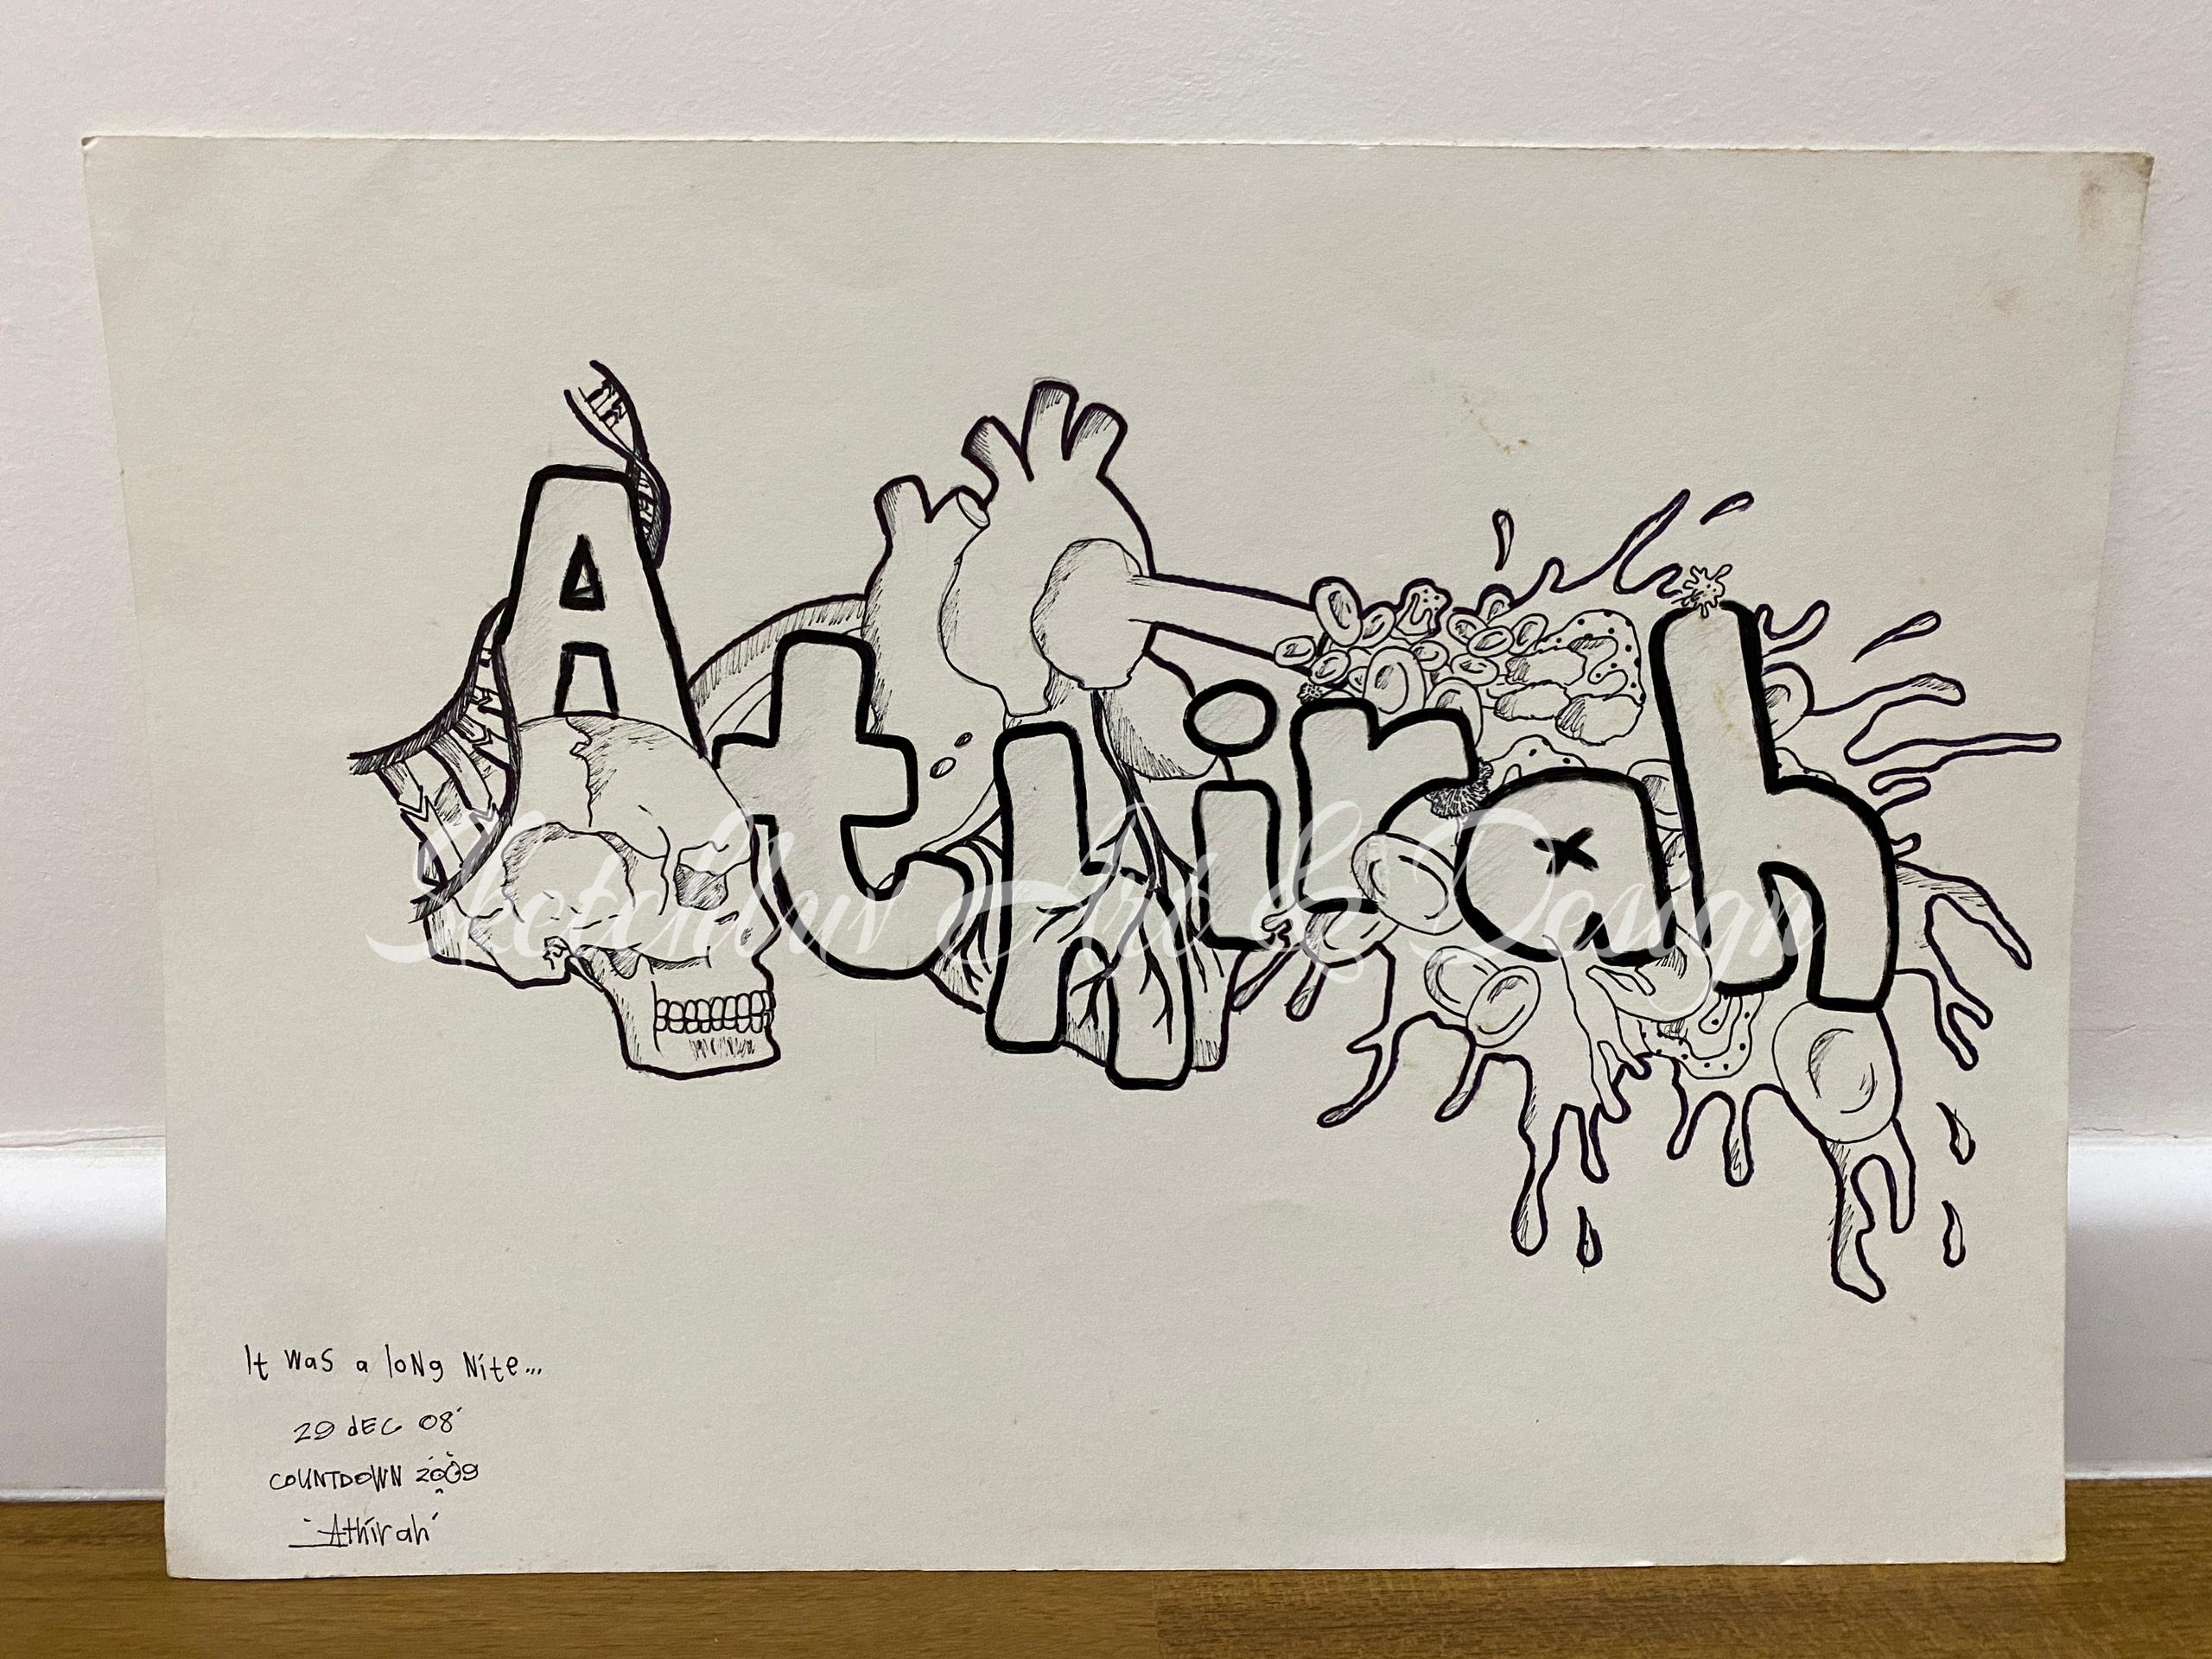 Athirah
Sketchluv Art & Design
It was a long Nite...
29 dEC 08'
COUNTDOWN 2009
'Athirah'